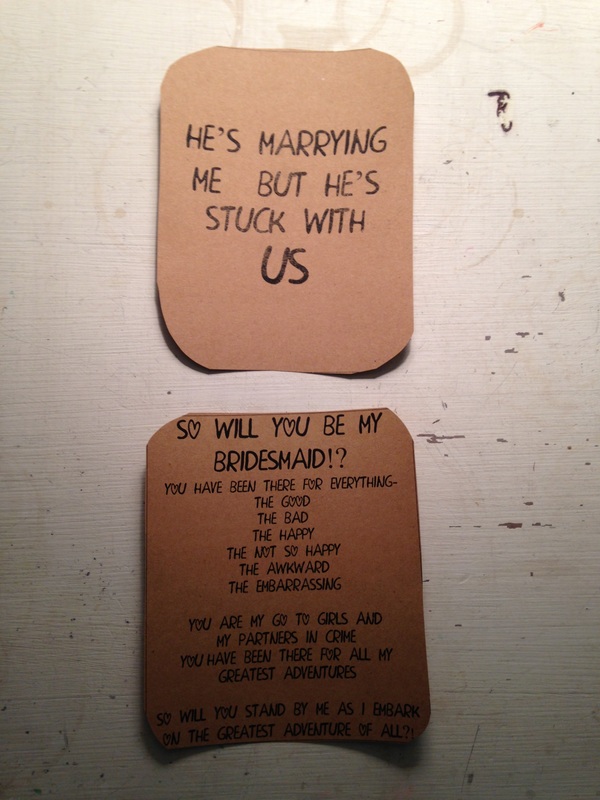 HE'S MARRYING
ME BUT HE'S
STUCK WITH
US
SO WILL YOU BE MY
BRIDESMAID!?
YOU HAVE BEEN THERE FOR EVERYTHING-
THE GOOD
THE BAD
THE HAPPY
THE NOT SO HAPPY
THE AWKWARD
THE EMBARRASSING
YOU ARE MY GO TO GIRLS AND
MY PARTNERS IN CRIME
YOU HAVE BEEN THERE FOR ALL MY
GREATEST ADVENTURES
SO WILL YOU STAND BY ME AS I EMBARK
ON THE GREATEST ADVENTURE OF ALL?!